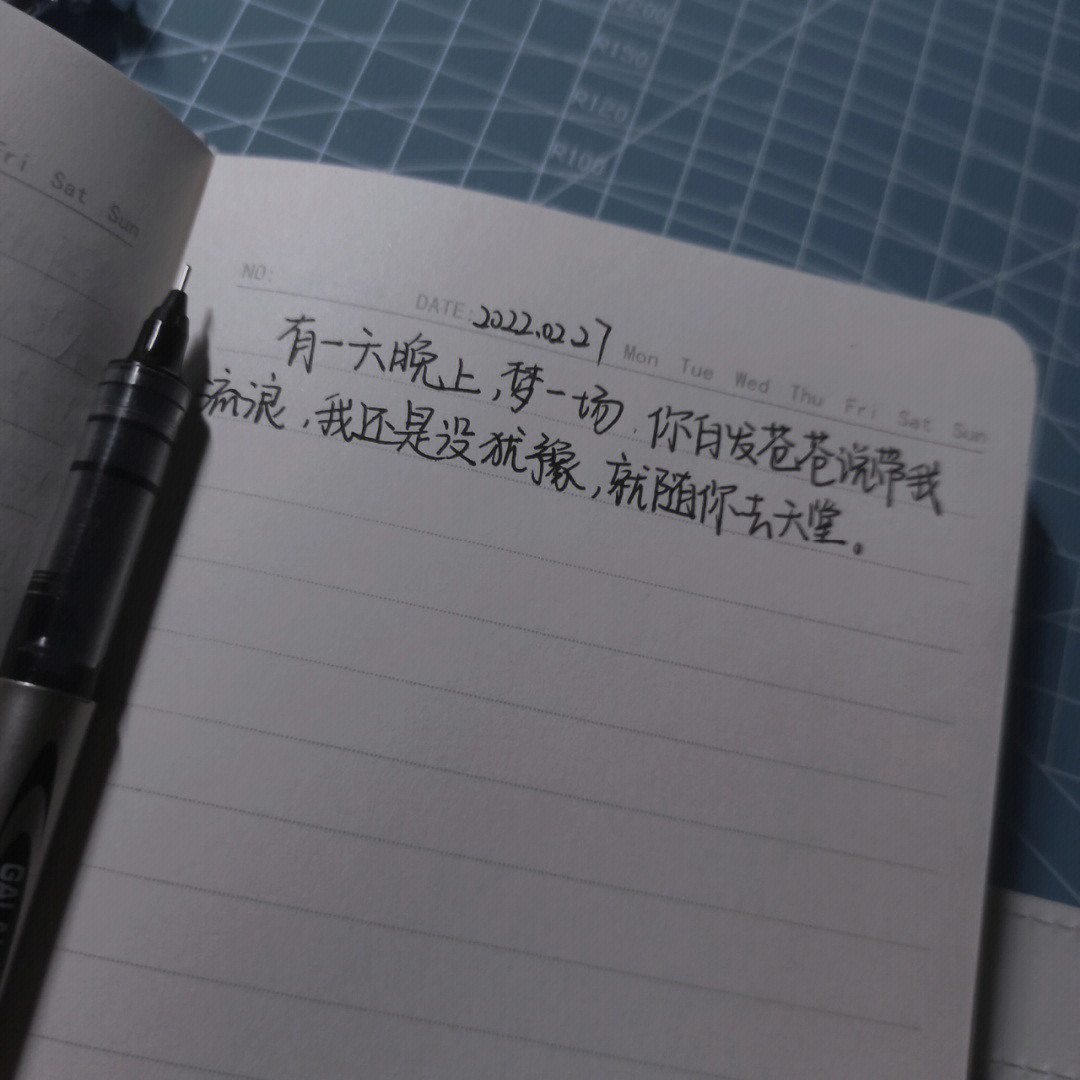 R200
R150
R120
R100
Fri Sat Sun
NO:
DATE: 2022.02.27 Mon Tue Wed Thu Fri Sat Sun
有一天晚上,梦一场,你白发苍苍说带我
流浪,我还是没犹豫,就随你去天堂。